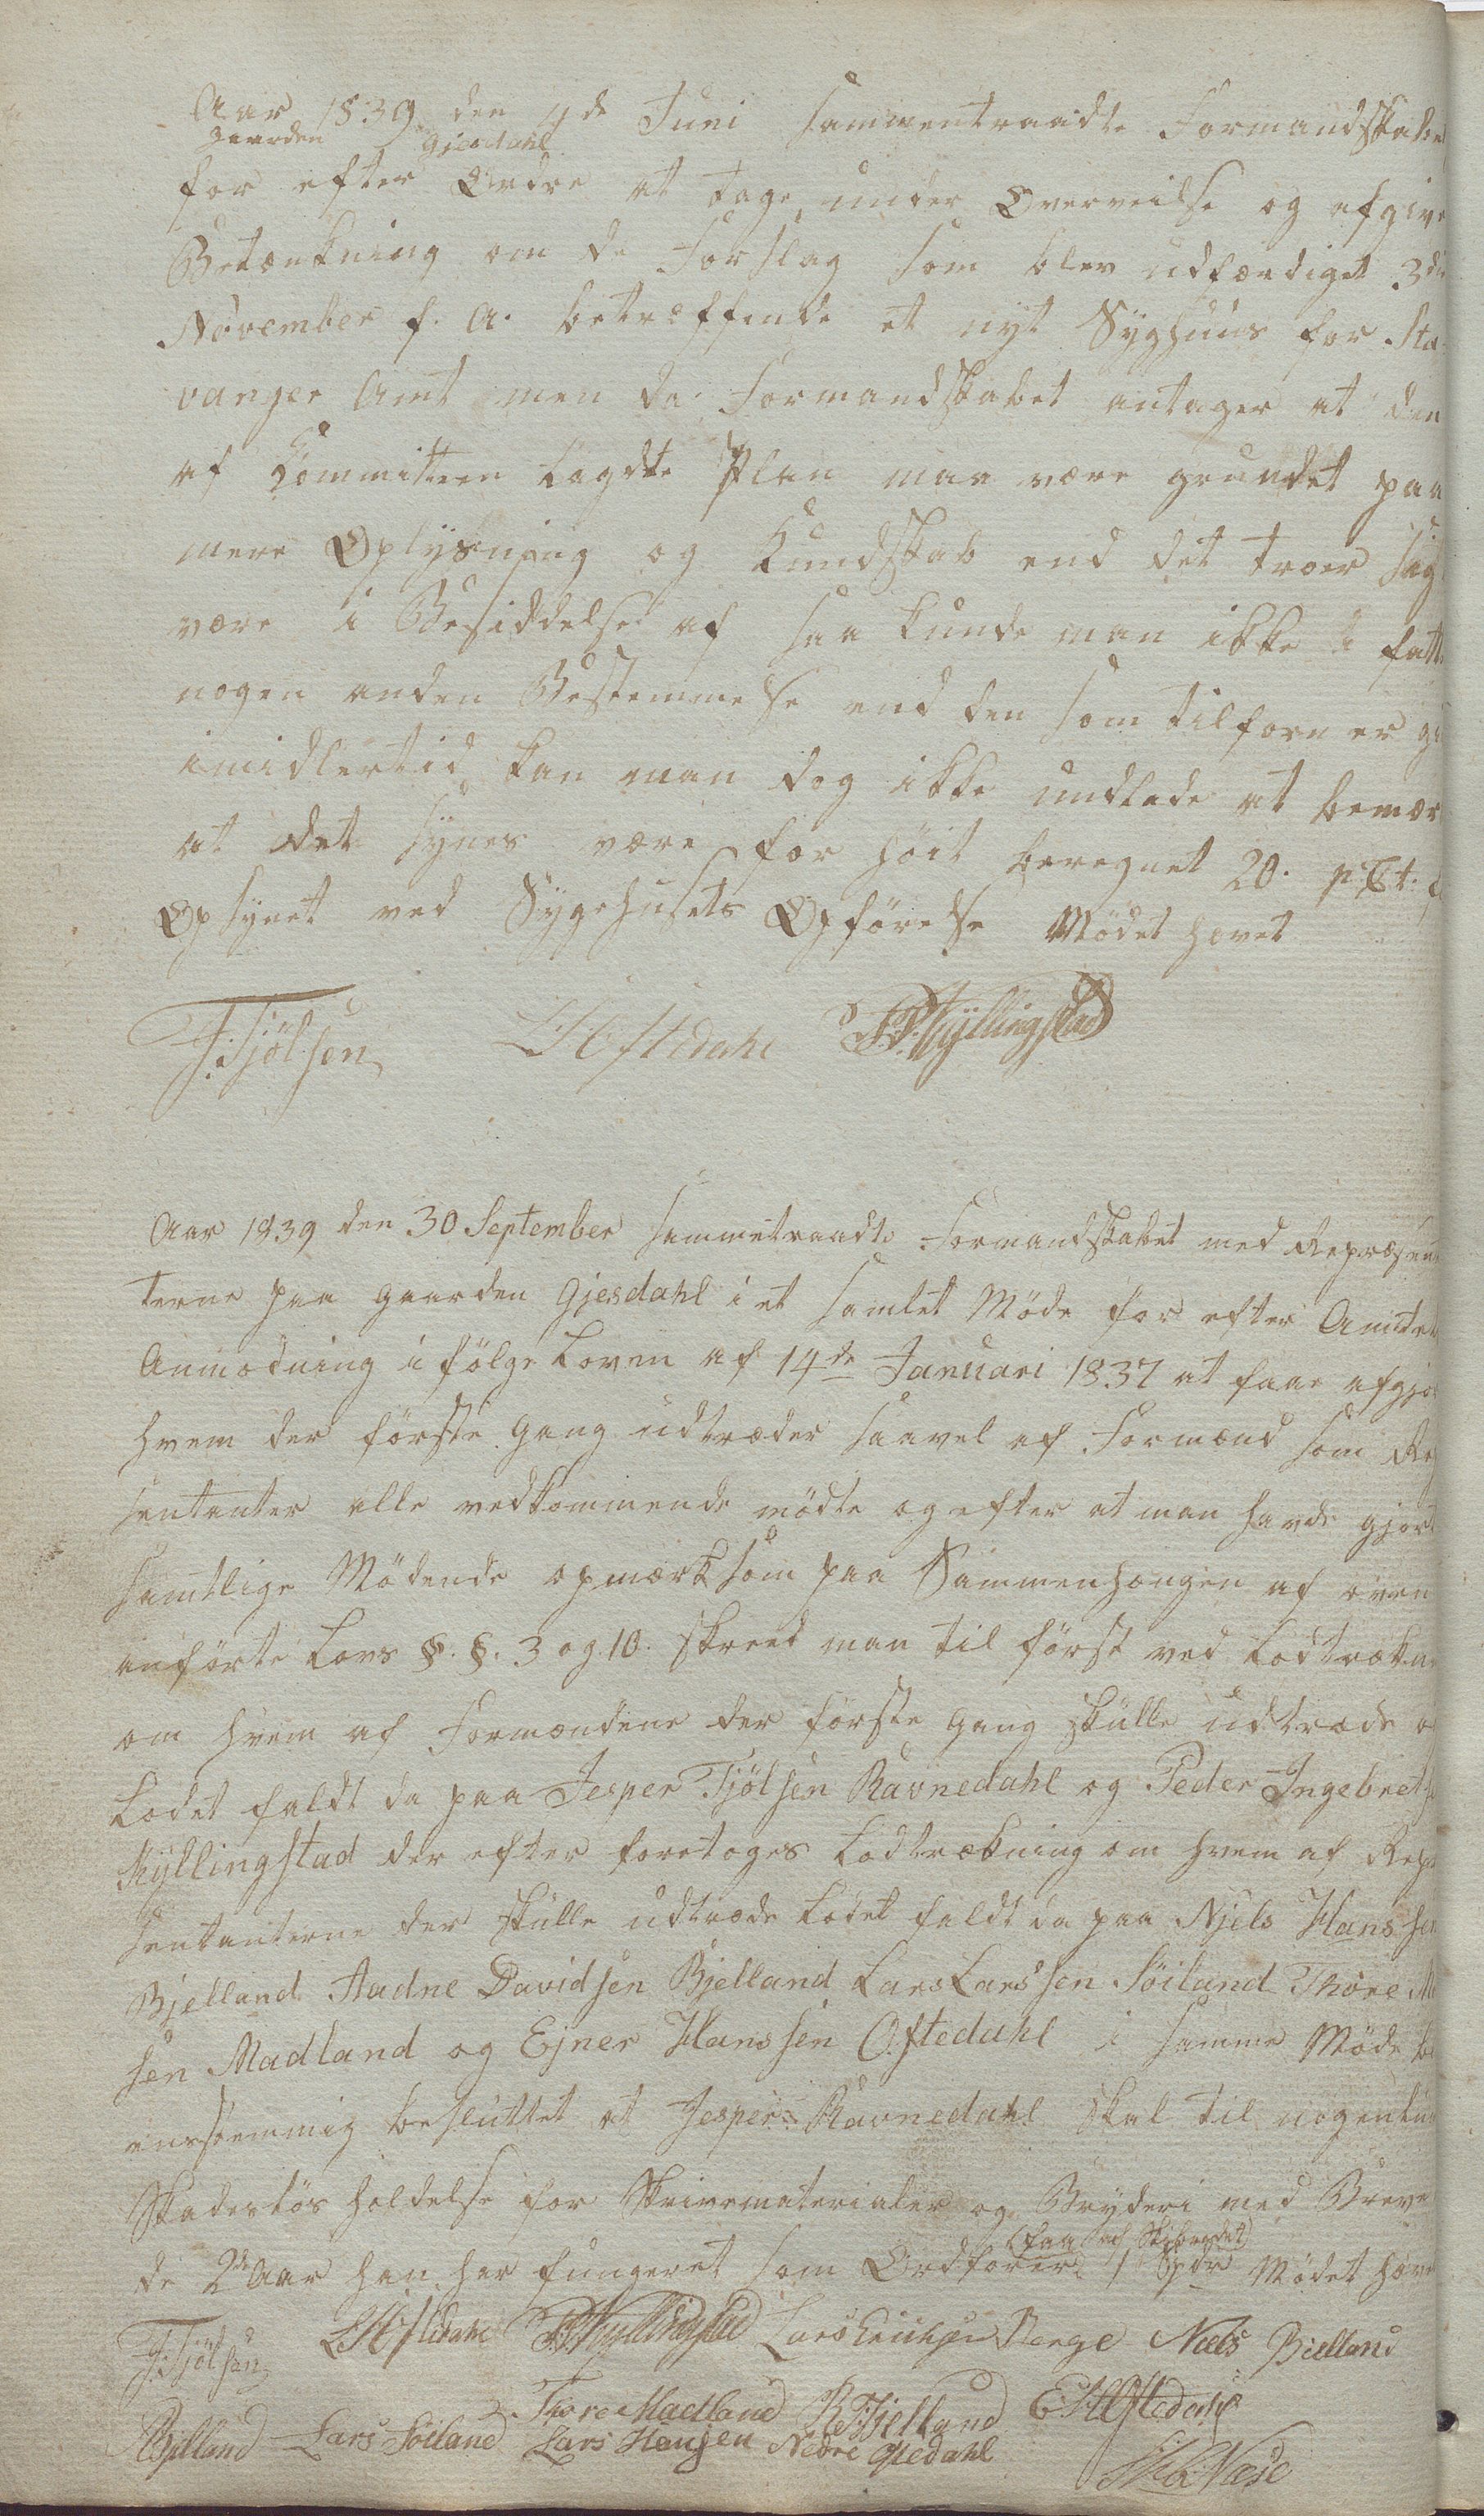 Aar 1839 den 4de Juni sammentraadte Formandskabet
gaarden Gjesdahl
for efter Ordre at tage under Overveielse og afgive
Betænkning om de Forslag som blev udfærdiget 3die
November f. A. betræffende et nyt Syghuus for Sta-
vanger Amt men da Formandskabet antager at den
af Committeen lagdte Plan maa være grundet paa
mere Oplysning og Kundskab end det troer sig
være i Besiddelse af saa kunde man ikke fatte
nogen anden Bestemmelse end den som tilforn er
imidlertid kan man dog ikke undlade at bemær
at det synes være for høit beregnet 20. pCt.
Opsynet ved Sygehusets Opførelse Mødet hævet
J. Tjølsen LH Oftedahl P. I. Kyllingstad
Aar 1839 den 30 September sammetraadte Formandskabet med Repræsen
terne paa gaarden Gjesdahl i et samlet Møde for efter Amtets
Anmodning i følge Loven af 14de Januari 1837 at faae afgjo
hvem der første Gang udtræder saavel af Formænd som Rep
sentanter alle vedkommende mødte og efter at man havde gjort
samtlige Mødende opmærksom paa Sammenhængen af oven
anførte Lovs §. §. 3 og 10. skreed man til først ved Lodtrækn
om hvem af Formændene der første Gang skulle udtræde
Lodet faldt da paa Jesper Tjølsen Ravnedahl og Peder Ingebret
Kyllingstad der efter foretoges Lodtrækning om hvem af Rep
sentanterne der skulle udtræde Lodet faldt da paa Njels Hanssen
Bjelland Aadne Davidsen Bjelland Lars Larssen Söiland Thore
sen Madland og Ejner Hanssen Oftedahl i samme Møde
eenstemmig besluttet at Jesper Ravnedahl skal til nogenlun
Skadesløs holdelse for Skrivematerialer og Bryderi med Breve
(faa af Skibredet)
de 2de Aar han har fungeret som Ordfører 1 Spdr Mødet hæve
J. Tjölsen LH Oftedahl P. I. Kyllingstad Lars Erichsen Berge Niels Bielland
Thore Madland Bjelland E H Oftedahl
Bjelland Lars Söiland Lars Hansen Nedre Oftedahl